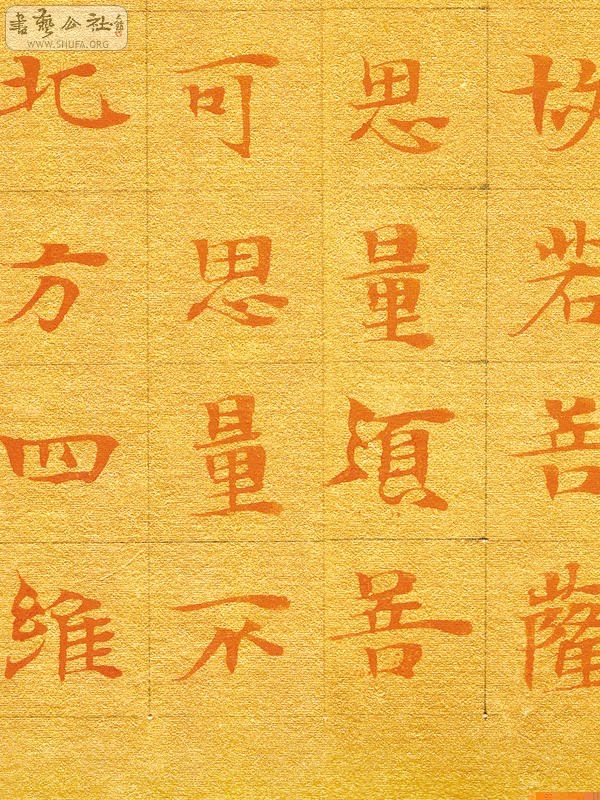 書藝公社
WWW.SHUFA.ORG
故若菩薩
思量須菩
可思量不
北方四維